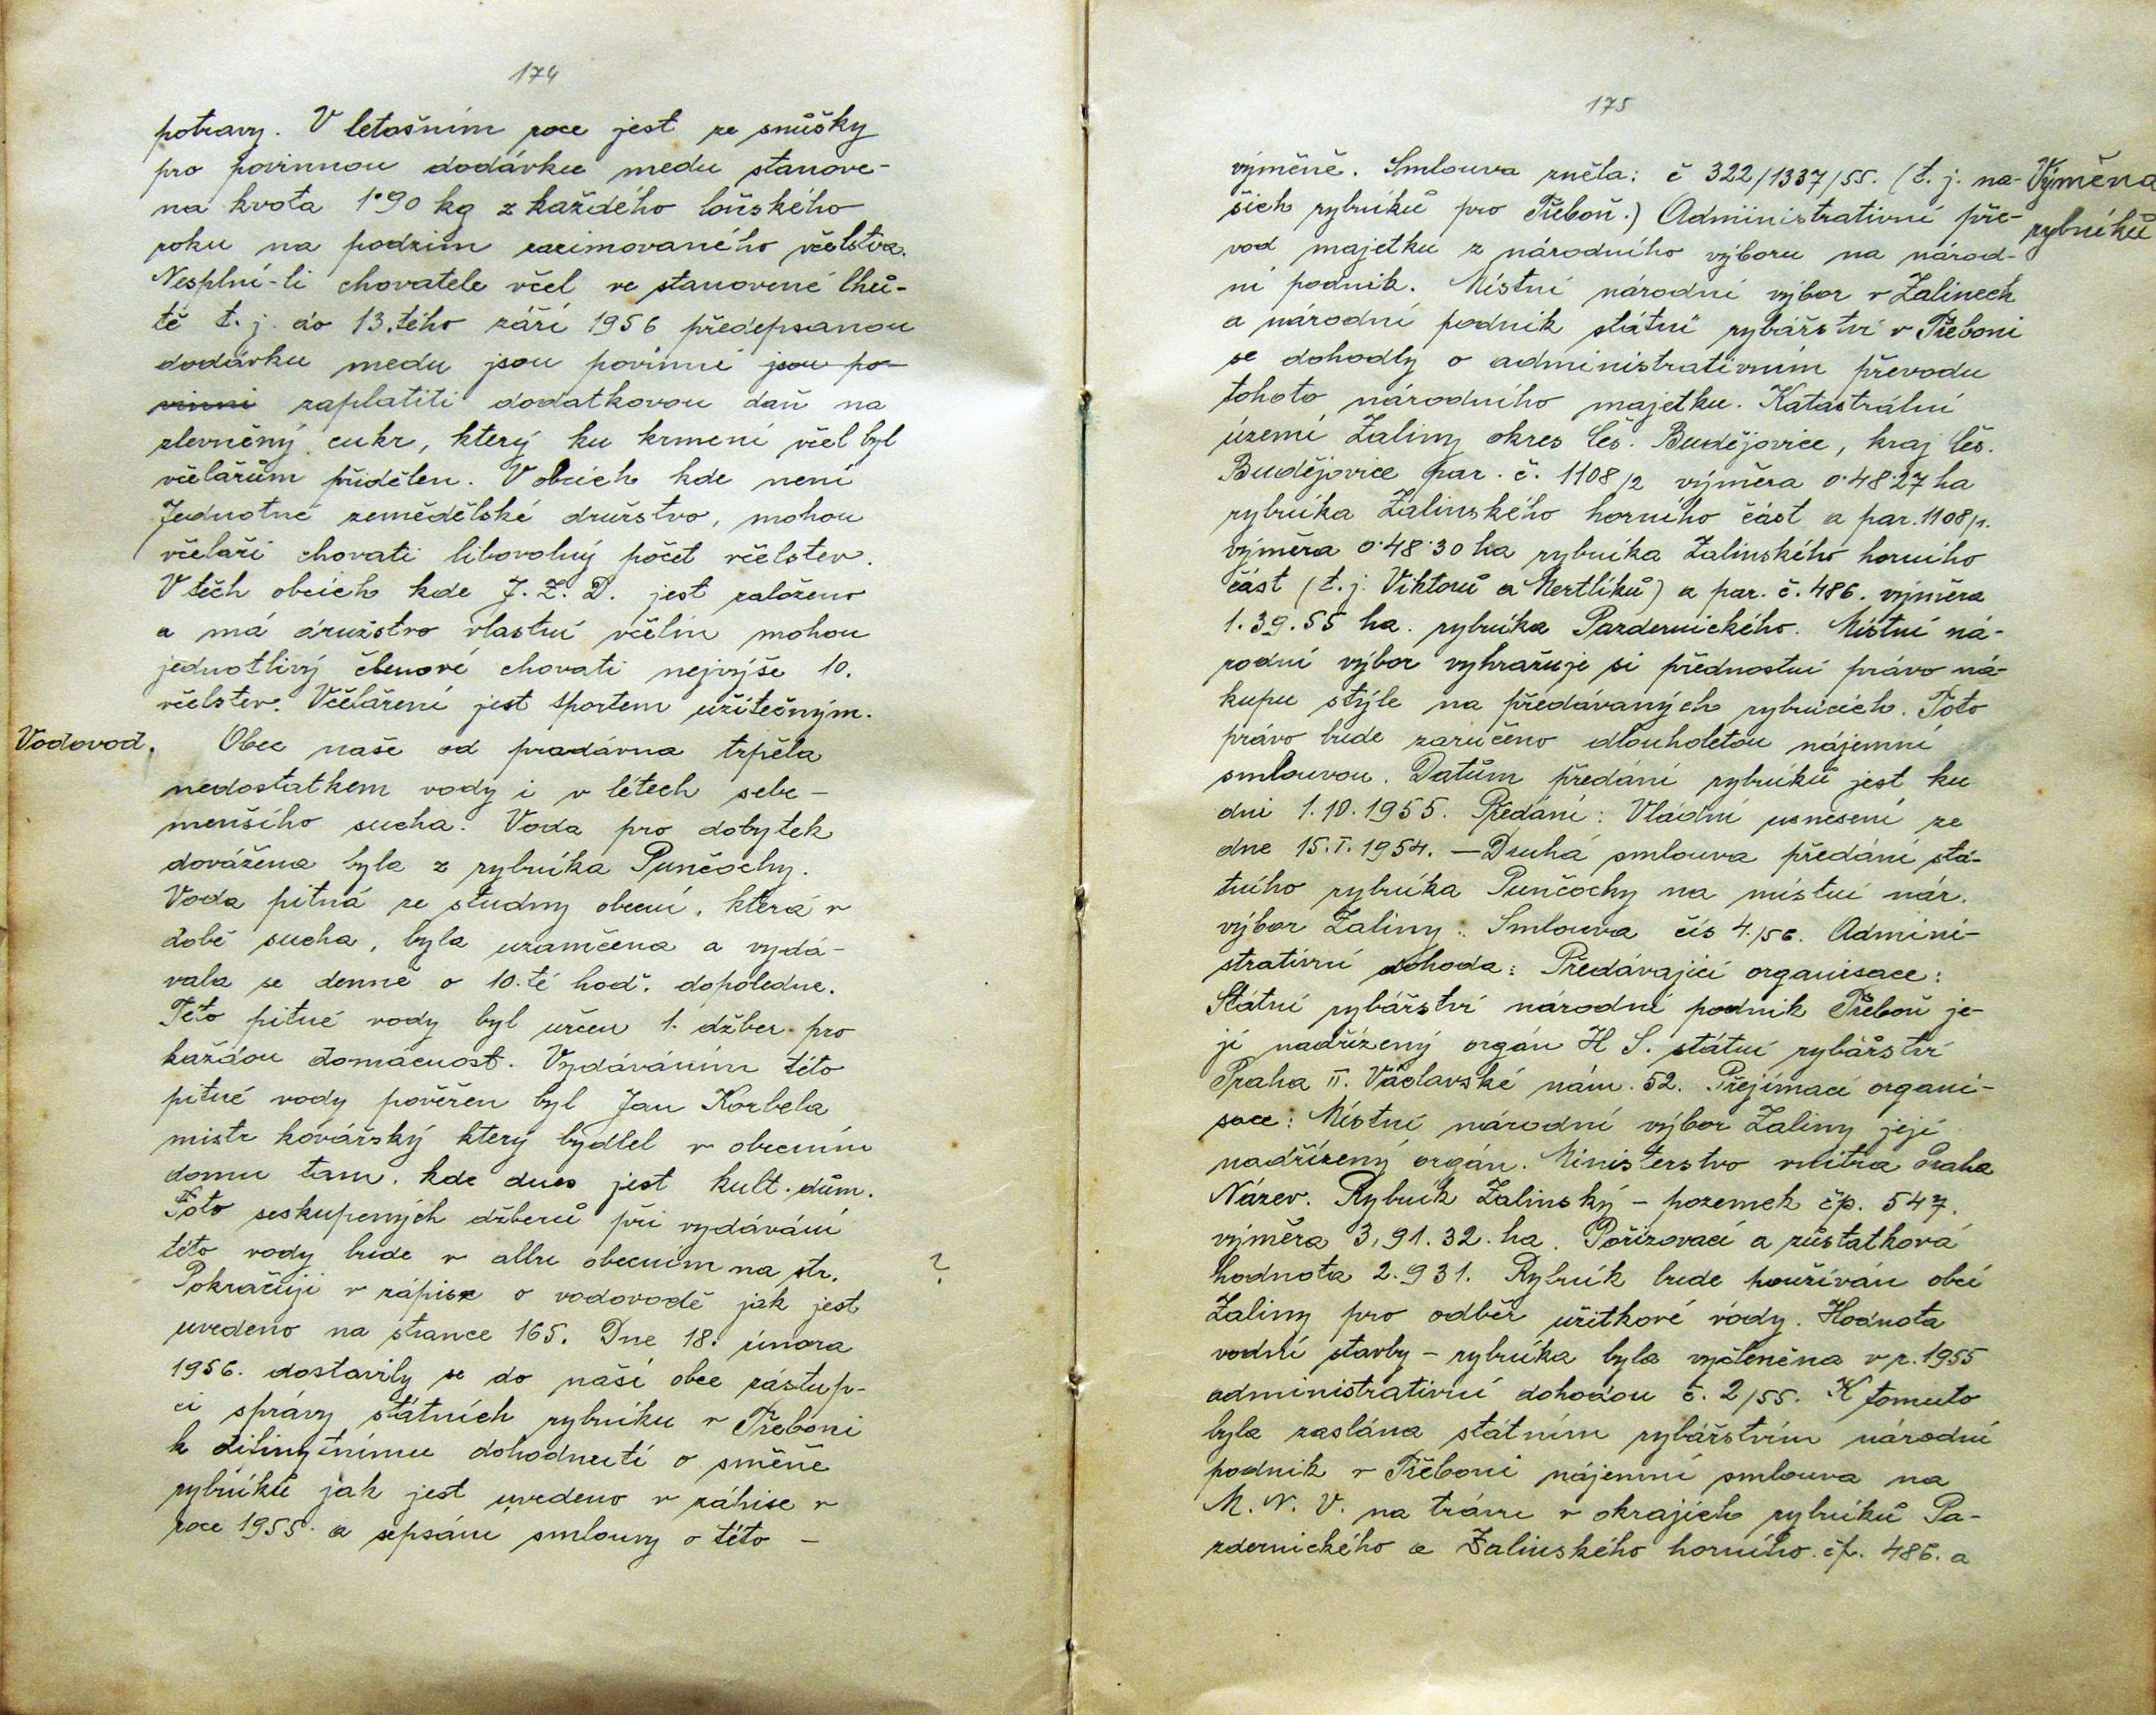 174
potravy. V letošním roce jest ze snůšky
pro povinnou dodávku medu stanove-
na kvota 1·90 kg z každého loňského
roku na podzim zazimovaného včelstva.
Nesplní-li chovatele včel ve stanovené lhů-
tě t. j. do 13.tého září 1956 předepsanou
dodávku medu jsou povinni jsou po-
vinni zaplatiti dodatkovou daň na
zlevněný cukr, který ku krmení včel byl
včelařům přidělen. V obcích kde není
Jednotné zemědělské družstvo, mohou
včelaři chovati libovolný počet včelstev.
V těch obcích kde J. Z. D. jest založeno
a má družstvo vlastní včelín mohou
jednotlivý členové chovati nejvýše 10.
včelstev. Včelaření jest sportem užitečným.
Vodovod. Obec naše od pradávna trpěla
nedostatkem vody i v létech sebe-
menšího sucha. Voda pro dobytek
dovážena byla z rybníka Punčochy.
Voda pitná ze studny obecní, která v
době sucha, byla uzamčena a vydá-
vala se denně o 10.té hod. dopoledne.
Této pitné vody byl určen 1. džber pro
každou domácnost. Vydáváním této
pitné vody pověřen byl Jan Korbela
mistr kovářský který bydlel v obecním
domu tam, kde dnes jest kult. dům.
Foto seskupených džberů při vydávání
této vody bude v albu obecním na str. ?
Pokračuji v zápise o vodovodě jak jest
uvedeno na strance 165. Dne 18. února
1956. dostavily se do naší obce zástup-
ci správy státních rybníku v Třeboni
k difinytnímu dohodnutí o směně
rybníků jak jest uvedeno v záhise v
roce 1955. a sepsání smlouvy o této -
175
výměně. Smlouva zněla: č 322/1337/55. (t. j. na- Výměna
šich rybníků pro Třeboň.) Administrativní pře- rybníků
vod majetku z národního výboru na národ-
ní podnik. Místní národní výbor v Zalinech
a národní podnik státní rybářství v Třeboni
se dohodly o administrativním převodu
tohoto národního majetku. Katastrální
území Zaliny okres Čes. Budějovice, kraj Čes.
Budějovice par. č. 1108/2 výměra 0·48·27 ha
rybníka Zálinského horního část a par. 1108/1.
výměra 0·48·30 ha rybníka Zalinského horního
část (t. j. Viktorů a Mertlíků) a par. č. 486. výměra
1.39.55 ha. rybníka Pazdernického. Místní ná-
rodní výbor vyhražuje si přednostní právo ná-
kupu stýle na předávaných rybnicích. Toto
právo bude zaručeno dlouholetou nájemní
smlouvou. Datům předání rybníků jest ku
dni 1.10.1955. Předání: Vládní usnesení ze
dne 15.I.1954. — Druhá smlouva předání stá-
tního rybníka Punčochy na místní nár.
výbor Zaliny. Smlouva čís 4./56. Admini-
strativní dohoda: Předávající organisace:
Státní rybářství národní podnik Třeboň je-
jí nadřízený orgán H S. státní rybářství
Praha II. Václavské nám. 52. Přejímací organi-
sace: Místní národní výbor Zaliny její
nadřízený orgán. Ministerstvo vnitra Praha
Název. Rybník Zalinský - pozemek čp. 547.
výměra 3,91.32. ha. Pořizovací a zůstatková
hodnota 2.931. Rybník bude používán obcí
Zaliny pro odběr užitkové vody. Hodnota
vodní stavby - rybníka byla vyčleněna v r. 1955
administrativní dohodou č. 2/55. K tomuto
byla zaslána státním rybářstvím národní
podnik v Třeboni nájemní smlouva na
M. N. V. na trávu v okrajích rybníků Pa-
zdernického a Zalinského horního. čp. 486. a